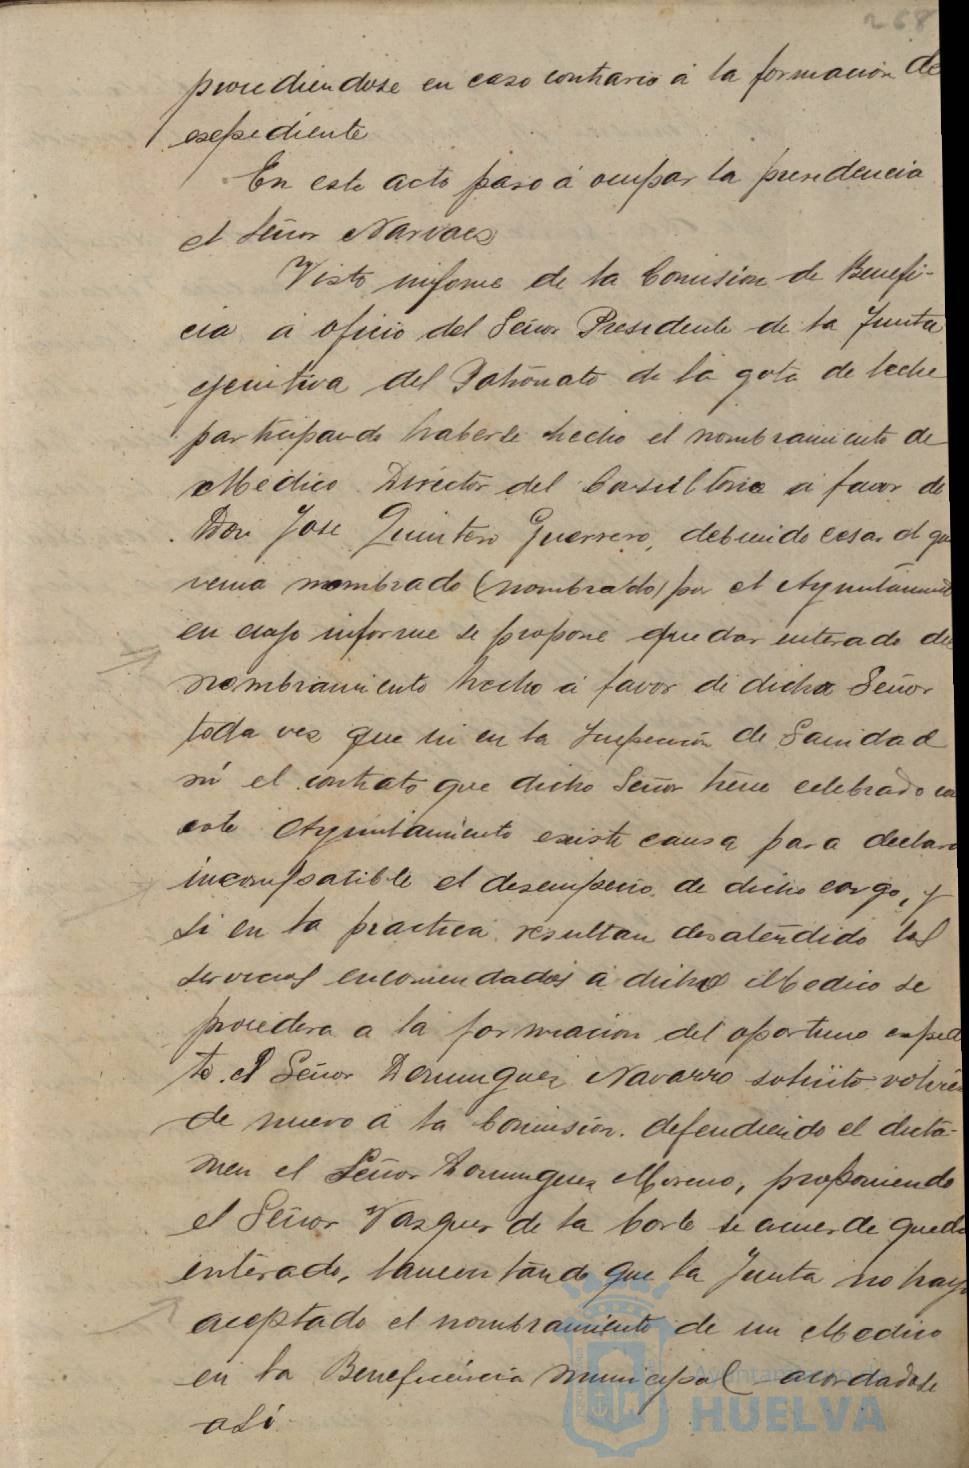 268
procediendose en caso contrario á la formacion de
expediente
En este acto paso á ocupar la presidencia
el Señor Narvaez
Visto informe de la Comision de Benefi-
cia á oficio del Señor Presidente de la Junta
ejecutiva del Patronato de la gota de leche
participando haberse hecho el nombramiento de
Medico Director del Consultorio á favor de
Don Jose Quintero Guerrero, debiendo cesar el que
venia nombrado (nombrado) por el Ayuntamient
en cuyo informe se propone quedar enterado del
nombramiento hecho á favor de dicho Señor
toda vez que ni en la Inspeccion de Sanidad
ni el contrato que dicho Señor tiene celebrado con
este Ayuntamiento existe causa para declara
incompatible el desempeño de dicho cargo, y
si en la practica resultan desatendido los
servicios encomendados á dicho Medico se
procedera a la formacion del oportuno expedi
te. el Señor Dominguez Navarro solicito volviera
de nuevo á la Comision. defendiendo el dicta-
men el Señor Dominguez Moreno, proponiendo
el Señor Vazquez de la Corte se acuerde queda
enterado, lamentando que la Junta no haya
aceptado el nombramiento de un Medico
en la Beneficencia municipal acordadose
asi
Ayuntamiento de
HUELVA